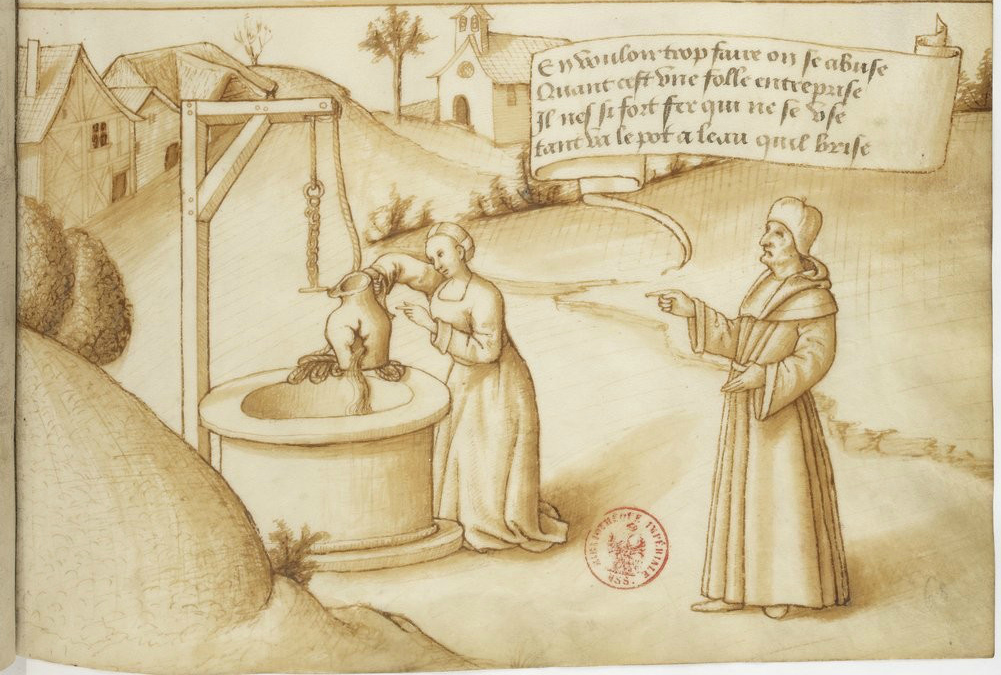 En vouloir trop faire on se abuse
Quant cest vne folle entreprise
Il nest si fort fer qui ne se vse
tant va le pot a leau quil brise
BIBLIOTHÈQUE IMPÉRIALE
MSS.